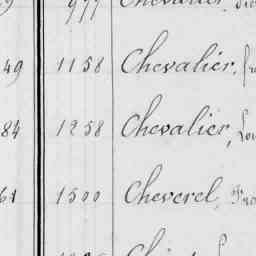 977 Chevalier,
49 1158 Chevalier,
84 1258 Chevalier,
61 1500 Cheverel,